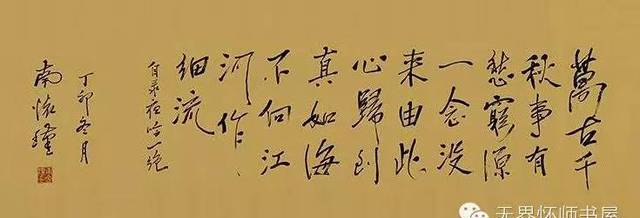 萬古千
秋事有
愁窮源
一念没
来由此
心歸到
真如海
不向江
河作
细流
自录夜吟一绝
丁卯冬月
南怀瑾
无界怀师书屋